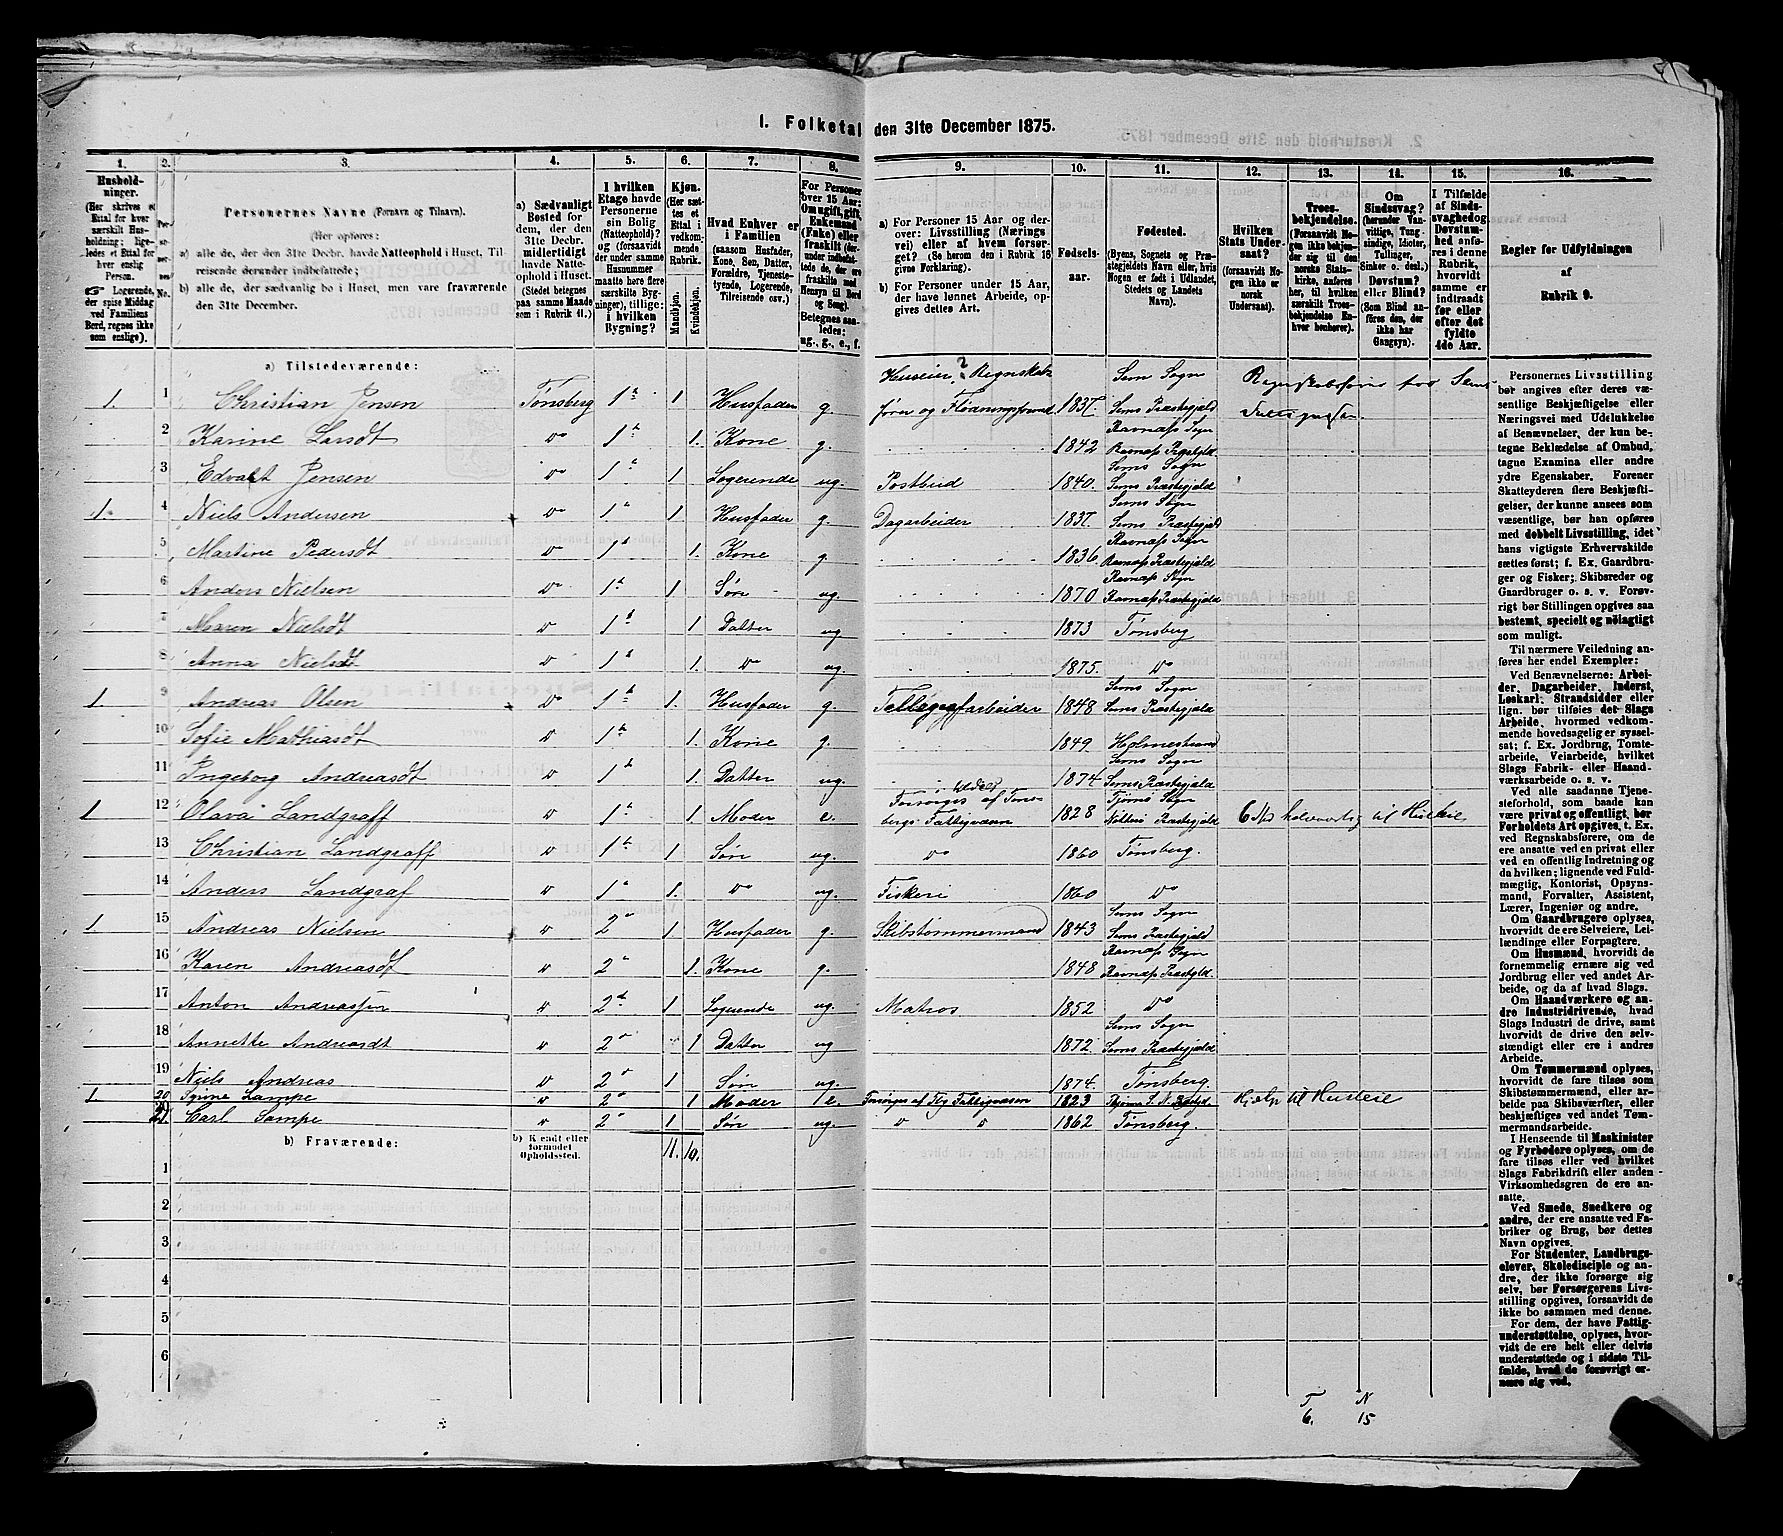 1. Folketal den 31te December 1875.
1. 2. 3. 4. 5. 6. 7. 8. 9. 10. 11. 12. 13. 14. 15. 16.
Husholdninger.
(Her skrives et
Ettal for hver
særskilt Husholdning;
ligeledes et Ettal for
hver enslig
Person.
Logerende,
der spise Middag
ved Familiens
Bord, regnes ikke
som enslige).
Personernes No.
Personernes Navne (Fornavn og Tilnavn).
(Her opføres:
a) alle de, der den 31te Decbr. havde Natteophold i Huset, Tilreisende derunder indbefattede;
b) alle de, der sædvanlig bo i Huset, men vare fraværende
den 31te December.
a) Sædvanligt
Bosted for
dem, der den
31te Decbr.
midlertidigt
havde Natteophold i Huset.
(Stedet betegnes
paa samme Maade
som i Rubrik 11.)
I hvilken
Etage havde
Personerne
sin Bolig
(Natteophold)?
og (forsaavidt
der under samme
Husnummer
maatte høre flere
særskilte Bygninger), tillige:
i hvilken
Bygning?
Kjøn.
(Her sættes et
Ettal i
vedkommende
Rubrik.
Mandkjøn.
Kvindekjøn.
Hvad Enhver er
i Familien
(saasom Husfader,
Kone, Søn, Datter,
Forældre, Tjenestetyende, Logerende,
Tilreisende osv.)
For Personer
over 15 Aar:
Om ugift, gift,
Enkemand
(Enke) eller
fraskilt (derunder indbefattede de, der ere
fraskilte med
Hensyn til Bord
og Seng).
Betegnes saaledes:
ug., g., e., f.
a) For Personer 15 Aar og derover: Livsstilling (Næringsvei) eller af hvem forsørget? (Se herom den i Rubrik 16
givne Forklaring).
b) For Personer under 15 Aar,
der have lønnet Arbeide, opgives dettes Art.
Fødselsaar.
Fødested.
(Byens, Sognets og Præstegjeldets Navn eller, hvis
Nogen er født i Udlandet,
Stedets og Landets
Navn).
Hvilken
Stats Undersaat?
(forsaavidt Nogen ikke er
norsk
Undersaat).
Troesbekjendelse.
(Forsaavidt Nogen ikke bekjender sig til den
norske Statskirke, anføres
her, til hvilken
særskilt Troesbekjendelse Enhver henhører).
Om
Sindssvag?
(herunder Vanvittige, Tungsindige, Idioter,
Tullinger,
Sinker o. desl.)
Døvstum?
eller Blind?
(Som Blind anføres den, der
ikke har
Gangsyn).
I Tilfælde
af Sindssvaghed og
Døvstumhed anføres i denne
Rubrik,
hvorvidt
samme er
indtraadt
før eller
efter det
fyldte
4de Aar.
Regler for Udfyldningen
af
Rubrik 9.
a) Tilstedeværende:
Huseier, ? Regnskabs Sem Sogn Regnskabsfører
1. 1 Christian Jensen Tønsberg 1 1 Husfader g. 1837. Sems Præstegjæld
Ravnæs Sogn
2 Karine Larsdt do 1 1. Kone g. 1842 Ravnæs
Sems Sogn
3 Edvart Jensen do 1 1 Logerende ug. Postbud 1840. Sems Præstegjæld
Sems Sogn
1. 4 Niels Andersen do 1 1 Husfader g. Dagarbeider 1837. Sems Præstegjæld
Ravnæs Sogn
5 Martine Pedersdt do 1 1. Kone g 1836. Ravnæs Præstegjæld
Ravnæs Sogn
6 Anders Nielsen do 1 1 Søn ug. 1870 Ravnæs Præstegjæld
7 Maren Nielsdt do 1 1 Datter ug 1873 Tønsberg
8 Anna Nielsdt do 1 1. do ug. 1875. do
Sems Sogn
1 9 Andreas Olsen do 1 1. Husfader g. Tellegrafarbeider 1848 Sems Præstegjæld
10 Sofie Mathiasdt do 1 1. Kone g. 1849 Holmestrand
Sems Sogn
11 Ingeborg Andreasdt do 1 1. Datter ug. 1874 Sems Præstegjæld
Forsørges af Tøns- Tjømø Sogn
1 12 Olava Landgraff do 1 1. Moder e. bergs Fattigvæsen 1828 Nøtterø Præstegjæld 6 til Husleie
13 Christian Landgraff do 1 1. Søn ug. do 1860 Tønsberg.
14 Anders Landgraf do 1 1. do ug. Fiskeri 1860 do
Sems Sogn
1 15 Andreas Nielsen do 2 1. Husfader g. Skibstømmermand 1843 Sems Præstegjæld
Ravnæs Sogn
16 Karen Andreasdt do 2 1. Kone g. 1848 Ravnæs
17 Anton Andreassen do 2 1 Logerende ug. Matros 1852 do
Sems Sogn
18 Annette Andreasdt do 2 1 Datter ug 1872. Sems Præstegjæld
19 Niels Andreas do 2 1 Søn ug. 1874. Tønsberg.
1 20 Lampe do 2 1 Moder e. Forsørges af Fattigvæsen 1823 Hjælp til Husleie
21. Carl Lampe do 2 1 Søn ug. do do 1862 Tønsberg.
b) Fraværende: b) Kjendt eller
formodet
Opholdssted. 11. 10.
1
2
3
4
5
6
Personernes Livsstilling
bør angives efter deres væsentlige Beskjæftigelse eller
Næringsvei med Udelukkelse
af Benævnelser, der kun betegne Beklædelse af Ombud,
tagne Examina eller andre
ydre Egenskaber. Forener
Skatteyderen flere Beskjæftigelser, der kunne ansees som
væsentlige, bør han opføres
med dobbelt Livsstilling, idet
hans vigtigste Erhvervskilde
sættes først; f. Ex. Gaardbruger og Fisker; Skibsreder og
Gaardbruger o. s. v. Forøvrigt bør Stillingen opgives saa
bestemt, specielt og nøiagtigt
som muligt.
Til nærmere Veiledning anføres her endel Exempler:
Ved Benævnelserne: Arbeider, Dagarbeider, Inderst,
Løskarl, Strandsidder eller
lign. bør tilføies det Slags
Arbeide, hvormed vedkommende hovedsagelig er sysselsat; f. Ex. Jordbrug, Tomtearbeide, Veiarbeide, hvilket
Slags Fabrik- eller Haandværksarbeide o. s. v.
Ved alle saadanne Tjenesteforhold, som baade kan
være privat og offentligt, bør
Forholdets Art opgives, t. Ex.
ved Regnskabsførere, om de
ere ansatte ved en privat eller
ved en offentlig Indretning og
da hvilken; lignende ved Fuldmægtig, Kontorist, Opsynsmand, Forvalter, Assistent,
Lærer, Ingeniør og andre.
Om Gaardbrugere oplyses,
hvorvidt de ere Selveiere, Leilændinge eller Forpagtere.
Om Husmænd, hvorvidt de
fornemmelig ernære sig ved
Jordbrug eller ved andet Arbeide, og da af hvad Slags.
Om Haandværkere og andre Industridrivende, hvad
Slags Industri de drive, samt
hvorvidt de drive den selvstændigt eller ere i andres
Arbeide.
Om Tømmermænd oplyses,
hvorvidt de fare tilsøs som
Skibstømmermænd, eller arbeide paa Skibsværfter, eller
beskjæftiges ved andet Tømmermandsarbeide.
I Henseende til Maskinister
og Fyrbødere oplyses, om de
fare tilsøs eller ved hvilket
Slags Fabrikdrift eller anden
Virksomhedsgren de ere ansatte.
Ved Smede, Snedkere og
andre, der ere ansatte ved Fabriker og Brug, bør dettes
Navn opgives.
For Studenter, Landbrugselever, Skoledisciple og andre, der ikke forsørge sig
selv, bør Forsørgerens Livsstilling opgives, forsaavidt de
ikke bo sammen med denne.
For dem, der have Fattigunderstøttelse, oplyses, hvorvidt de ere helt eller delvis
understøttede og i sidste Tilfælde, hvad de forøvrigt ernære sig ved.
T N
6. 15